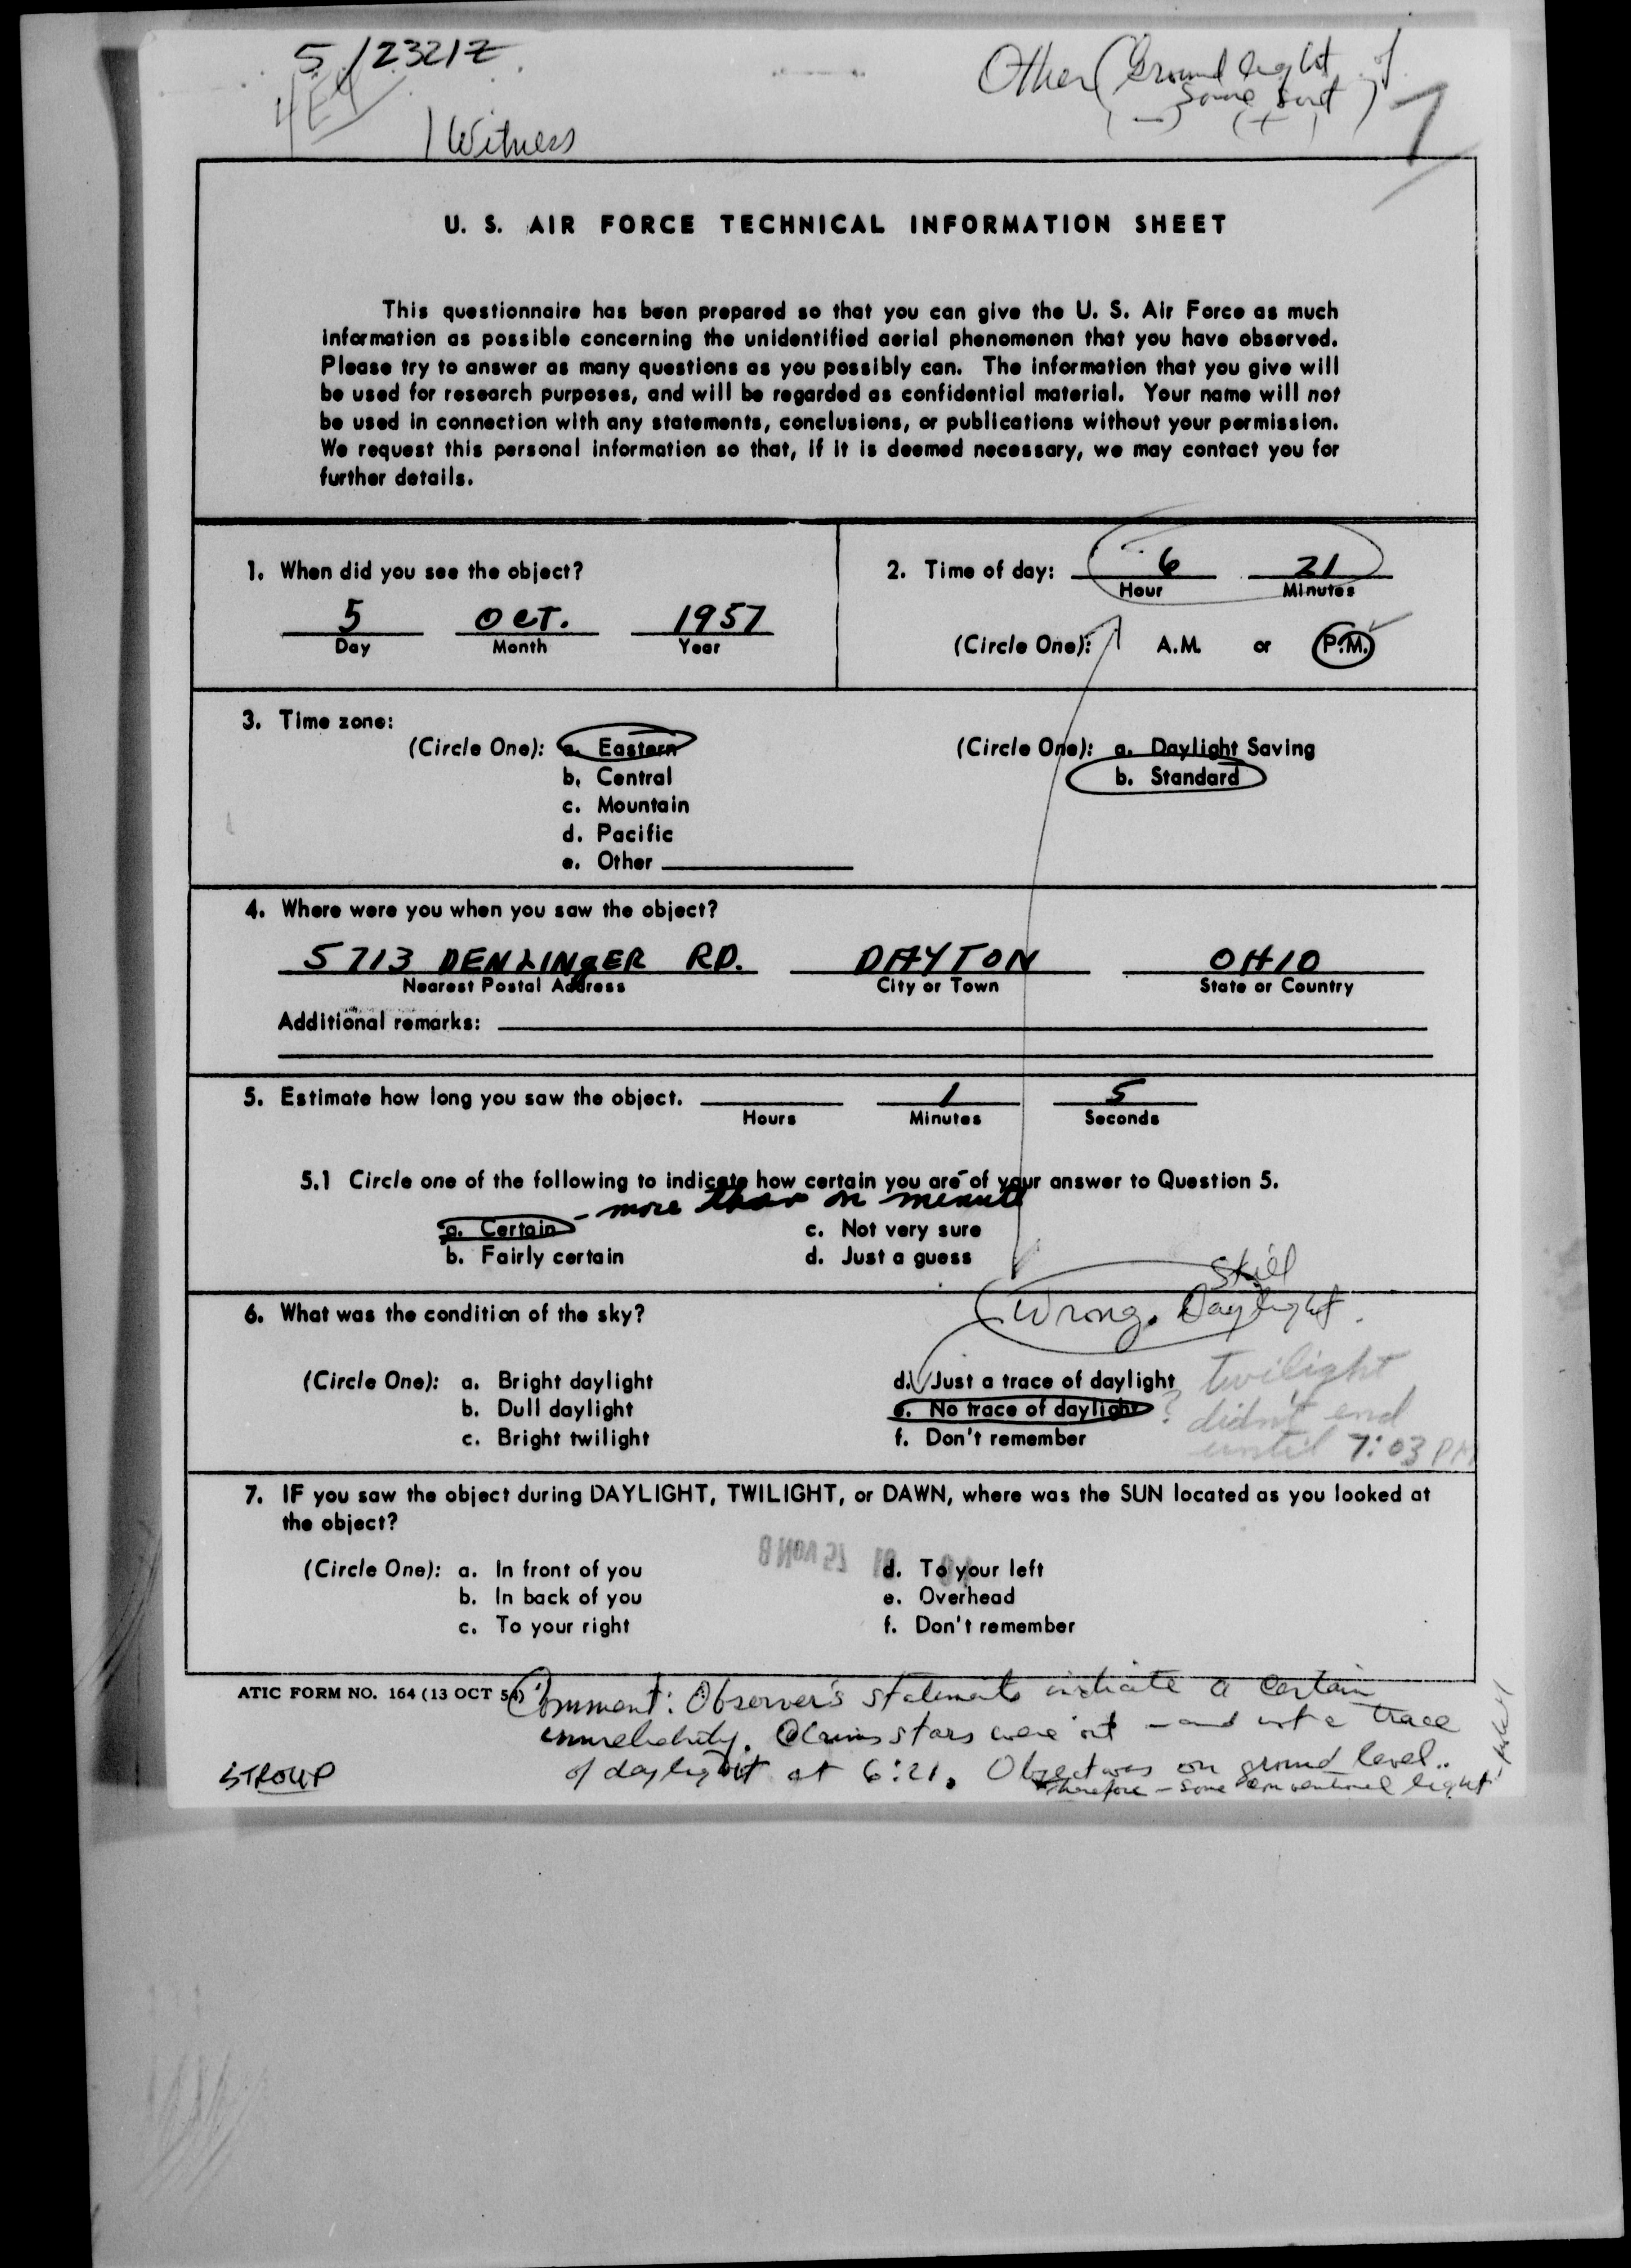 5/2321Z
1 Witness
Other (Ground light of
some sort)
(—) (+)
U. S. AIR FORCE TECHNICAL INFORMATION SHEET
This questionnaire has been prepared so that you can give the U. S. Air Force as much
information as possible concerning the unidentified aerial phenomenon that you have observed.
Please try to answer as many questions as you possibly can. The information that you give will
be used for research purposes, and will be regarded as confidential material. Your name will not
be used in connection with any statements, conclusions, or publications without your permission.
We request this personal information so that, if it is deemed necessary, we may contact you for
further details.
1. When did you see the object?
5 OCT. 1957
Day Month Year
2. Time of day: 6 21
Hour Minutes
(Circle One): A.M. or P.M.
3. Time zone:
(Circle One): a. Eastern
b. Central
c. Mountain
d. Pacific
e. Other
(Circle One): a. Daylight Saving
b. Standard
4. Where were you when you saw the object?
5713 DENLINGER RD. DAYTON OHIO
Nearest Postal Address City or Town State or Country
Additional remarks:
5. Estimate how long you saw the object. 1 5
Hours Minutes Seconds
5.1 Circle one of the following to indicate how certain you are of your answer to Question 5.
- more than on minute
a. Certain c. Not very sure
b. Fairly certain d. Just a guess
6. What was the condition of the sky?
Still
Wrong. Daylight.
(Circle One): a. Bright daylight
b. Dull daylight
c. Bright twilight
d. Just a trace of daylight
e. No trace of daylight ?
f. Don't remember
twilight
didn't end
until 7:03 PM
7. IF you saw the object during DAYLIGHT, TWILIGHT, or DAWN, where was the SUN located as you looked at
the object?
(Circle One): a. In front of you
b. In back of you
c. To your right
d. To your left
e. Overhead
f. Don't remember
ATIC FORM NO. 164 (13 OCT 54)
Comment: Observer's statements indicate a certain
unreliability. Claims stars were out - and not a trace
of daylight at 6:21. Object was on ground level..
therefore - some conventional light
STROUP